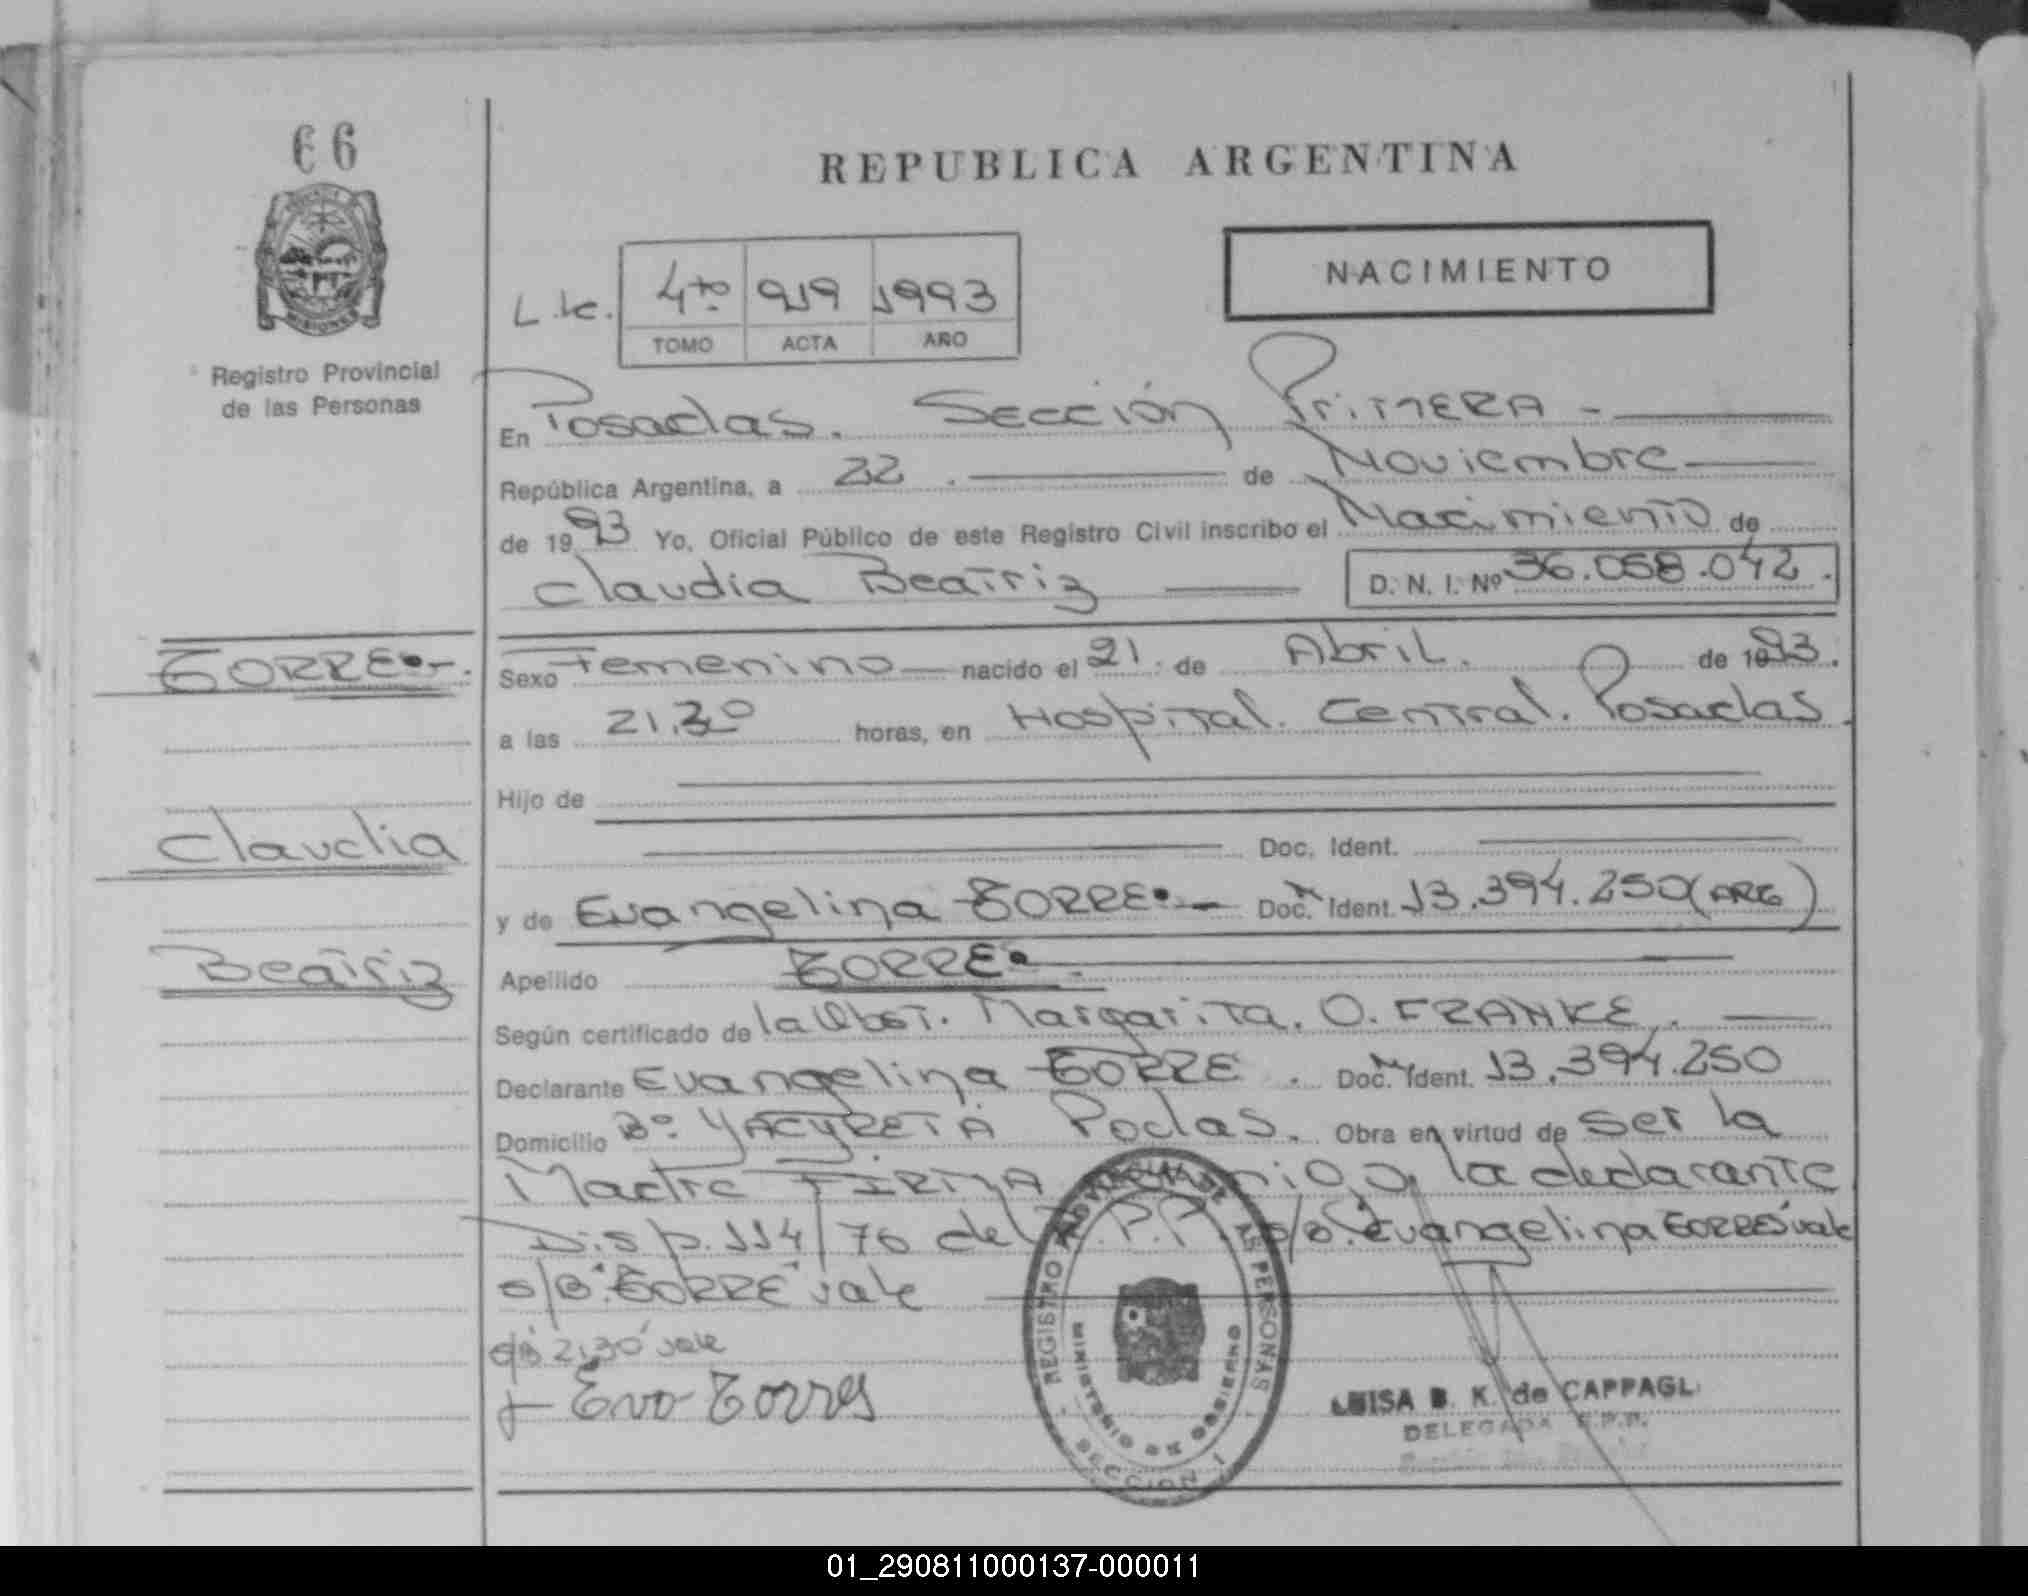 66
MISIONES
Registro Provincial
de las Personas
REPUBLICA ARGENTINA
NACIMIENTO
4to 919 1993
TOMO ACTA AÑO
En Posadas. Sección Primera -
República Argentina, a 22. de Noviembre
de 1993 Yo, Oficial Público de este Registro Civil inscribo el Nacimiento de
Claudia Beatriz D. N. I. Nº 36.058.042.
TORRE.-.
Sexo Femenino nacido el 21. de Abril. de 1993.
a las 21.30 horas, en Hospital. Central. Posadas.
Hijo de
Claudia
Doc. Ident.
y de Evangelina TORRE.- Doc. Ident. 13.394.250 (ARG)
Beatriz
Apellido TORRE.
Según certificado de la Obst. Margarita. O. FRANKE.
Declarante Evangelina TORRE. Doc. Ident. 13.394.250
Domicilio Bº. YACYRETA Podas. Obra en virtud de ser la
Madre FIRMA la declarante
Disp. 114/76 del R.P.P. s/B. "Evangelina TORRES" vale
s/B. "TORRE" vale
s/B "21,30" vale
Eva Torres
REGISTRO PROVINCIAL DE LAS PERSONAS
MINISTERIO DE GOBIERNO
SECCION I
LUISA B. K. de CAPPAGLI
DELEGADA R.P.P.
01_290811000137-000011